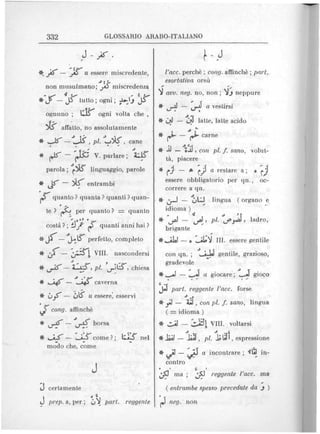 332
GLOSSARIO ARABO-ITALIANO
ل - كفر
* كفر – كفر a essere miscredente,
non mussulmano; كفر miscredenza
* كل – كل tutto; ogni;
ognuno; كلما ogni volta che,
كلا affatto, no assolutamente
* كلب – كلب, pl. كلاب, cane
* كلم – V. parlare;
parola; كلام linguaggio, parole
* كلا entrambi
كم quanto? quanta? quanti? quan-
te? بكم per quanto? = quanto
costa?; quanti anni hai?
* كمل – كامل perfetto, completo
* كمن – VIII. nascondersi
* كنيسة, pl. كنائس, chiesa
* كهف – كهف caverna
* كون – كان a essere, esservi
كي cong. affinchè
* كيس – كيس borsa
* كيف – كيف come?; nel
modo che, come
ل
ل certamente
ل prep. a, per; part. reggente
l'acc. perchè; cong. affinchè; part.
esortativa orsù
لا avv. neg. no, non; ولا neppure
* لبس – لبس a vestirsi
* لبن – لبن latte, latte acido
* لحم – لحم carne
* لذ – لذة, con pl. f. sano, volut-
tà, piacere
* لزم – لزم a restare a;
essere obbligatorio per qn., oc-
correre a qn.
* لسن – لسان lingua (organo e
idioma)
* لص – لص, pl. لصوص, ladro,
brigante
* لطف – III. essere gentile
con qn.; لطيف gentile, grazioso,
gradevole
* لعب – لعب a giocare; لعب gioco
لعل part. reggente l'acc. forse
* لغو – لغة, con pl. f. sano, lingua
(= idioma)
* لفت – VIII. voltarsi
* لفظ – لفظ, pl. ألفاظ, espressione
* لقي – لقي a incontrare; لقاء in-
contro
لكن ma; لكن reggente l'acc. ma
(entrambe spesso precedute da و)
لم neg. non